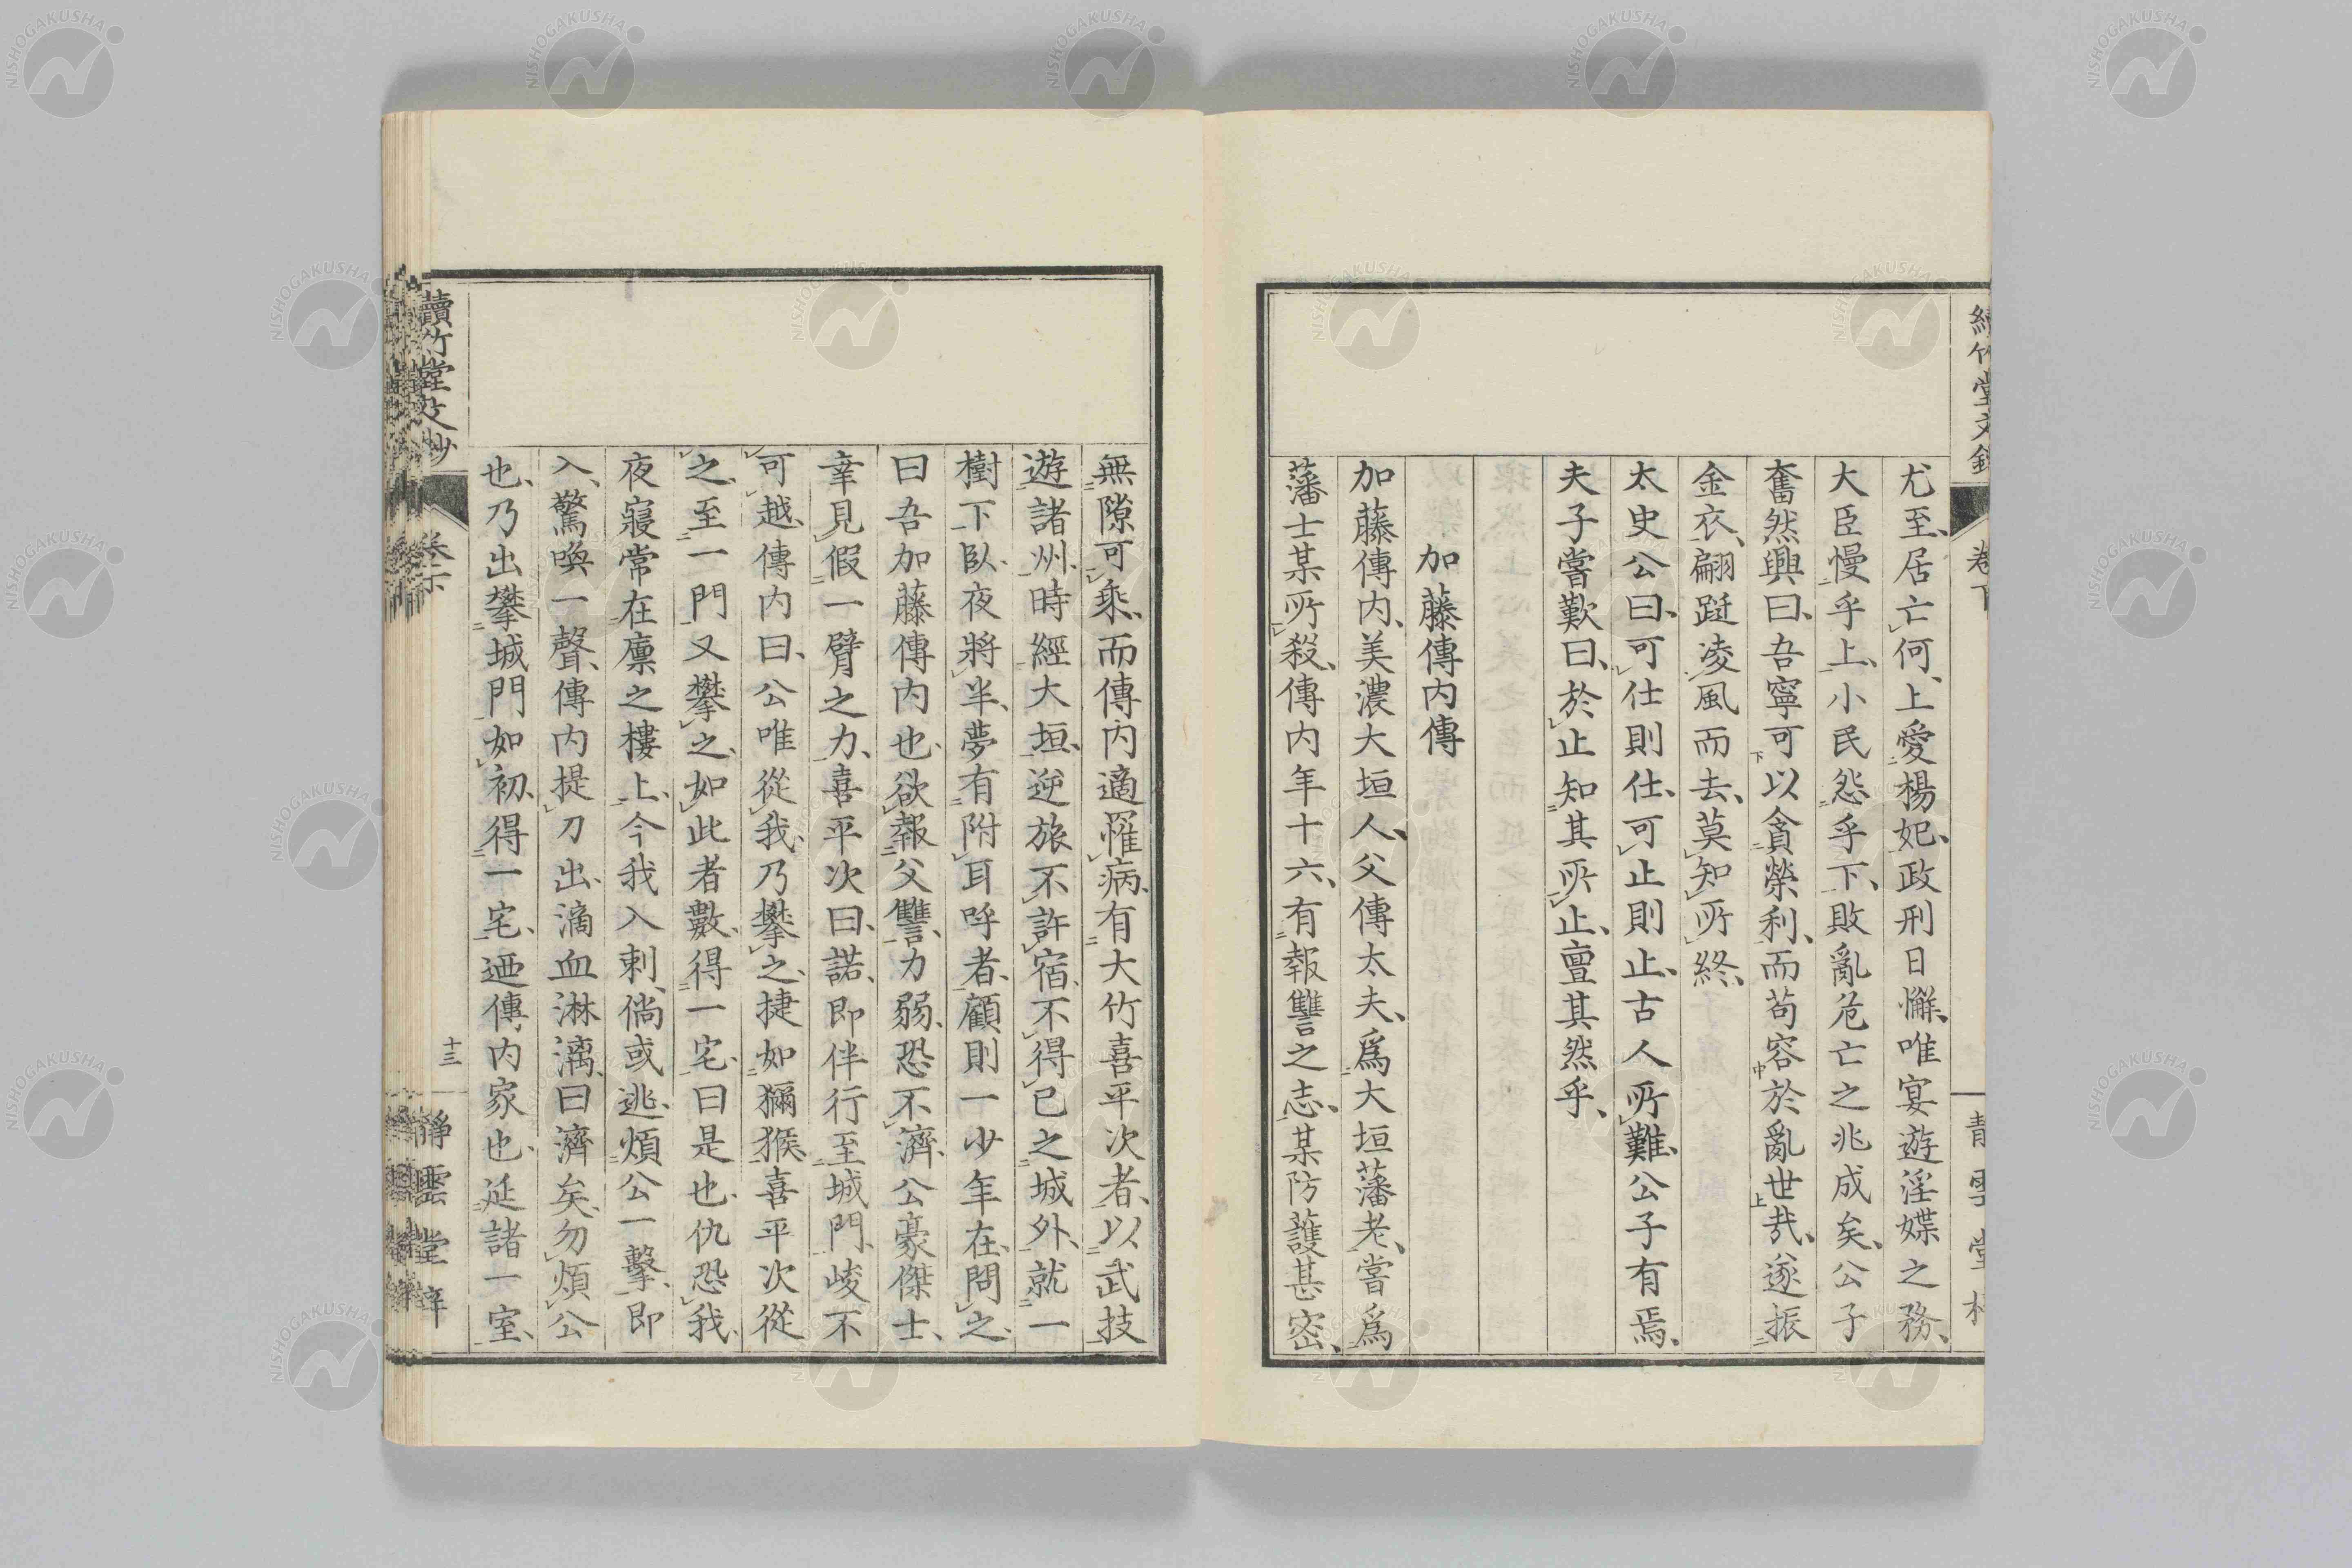 尤至、居亡何、上愛楊妃、政刑日懈、唯宴遊淫媟之務、
大臣慢乎上、小民怨乎下、敗亂危亡之兆成矣、公子
奮然興曰、吾寧可以貪榮利、而苟容於亂世哉、遂振
金衣、翩躚凌風而去、莫知所終、
太史公曰、可仕則仕、可止則止、古人所難、公子有焉、
夫子嘗歎曰、於止知其所止、亶其然乎、
加藤傳内傳
加藤傳内、美濃大垣人、父傳太夫、爲大垣藩老、嘗爲
藩士某所殺、傳内年十六、有報讐之志、某防護甚密、
無隙可乘、而傳内適罹病、有大竹喜平次者、以武技
遊諸州、時經大垣、逆旅不許宿、不得已之城外、就一
樹下臥、夜將半、夢有附耳呼者、顧則一少年在、問之、
曰吾加藤傳内也、欲報父讐、力弱、恐不濟、公豪傑士、
幸見假一臂之力、喜平次曰、諾、即伴行至城門、峻不
可越、傳内曰、公唯從我、乃攀之、捷如獼猴、喜平次從
之、至一門又攀之、如此者數、得一宅、曰是也、仇恐我、
夜寢常在廪之樓上、今我入刺、倘或逃、煩公一擊、即
入、驚喚一聲、傳内提刀出、滴血淋漓、曰濟矣、勿煩公
也、乃出攀城門如初、得一宅、迺傳内家也、延諸一室、
卷下
青雲堂
讀竹堂文鈔
十三
靜雲堂梓
NISHOGAKUSHA